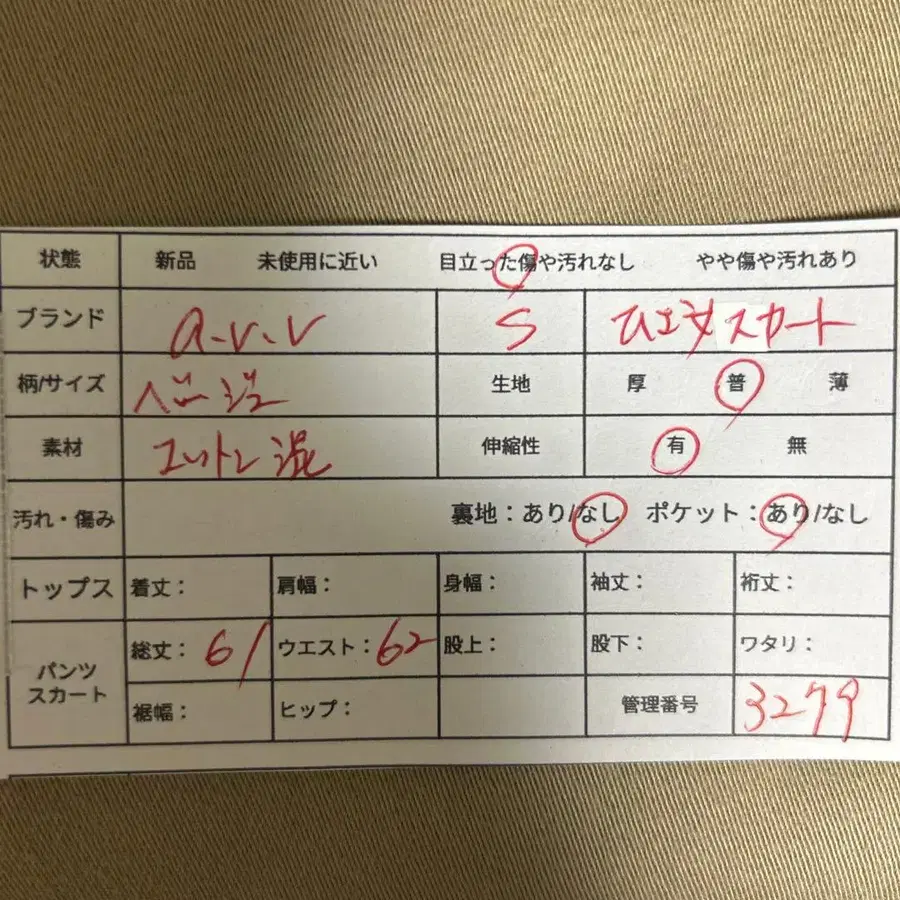 状態 新品 未使用に近い 目立った傷や汚れなし やや傷や汚れあり
ブランド a.v.v S スカート
柄/サイズ ベージュ 生地 厚 普 薄
素材 コットン混 伸縮性 有 無
汚れ・傷み 裏地:あり/なし ポケット:あり/なし
トップス 着丈: 肩幅: 身幅: 袖丈: 裄丈:
パンツ スカート 総丈:61 ウエスト:62 股上: 股下: ワタリ:
裾幅: ヒップ: 管理番号 3279